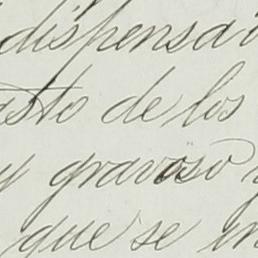 dispensa
asto de los
y gravoso y
que se en